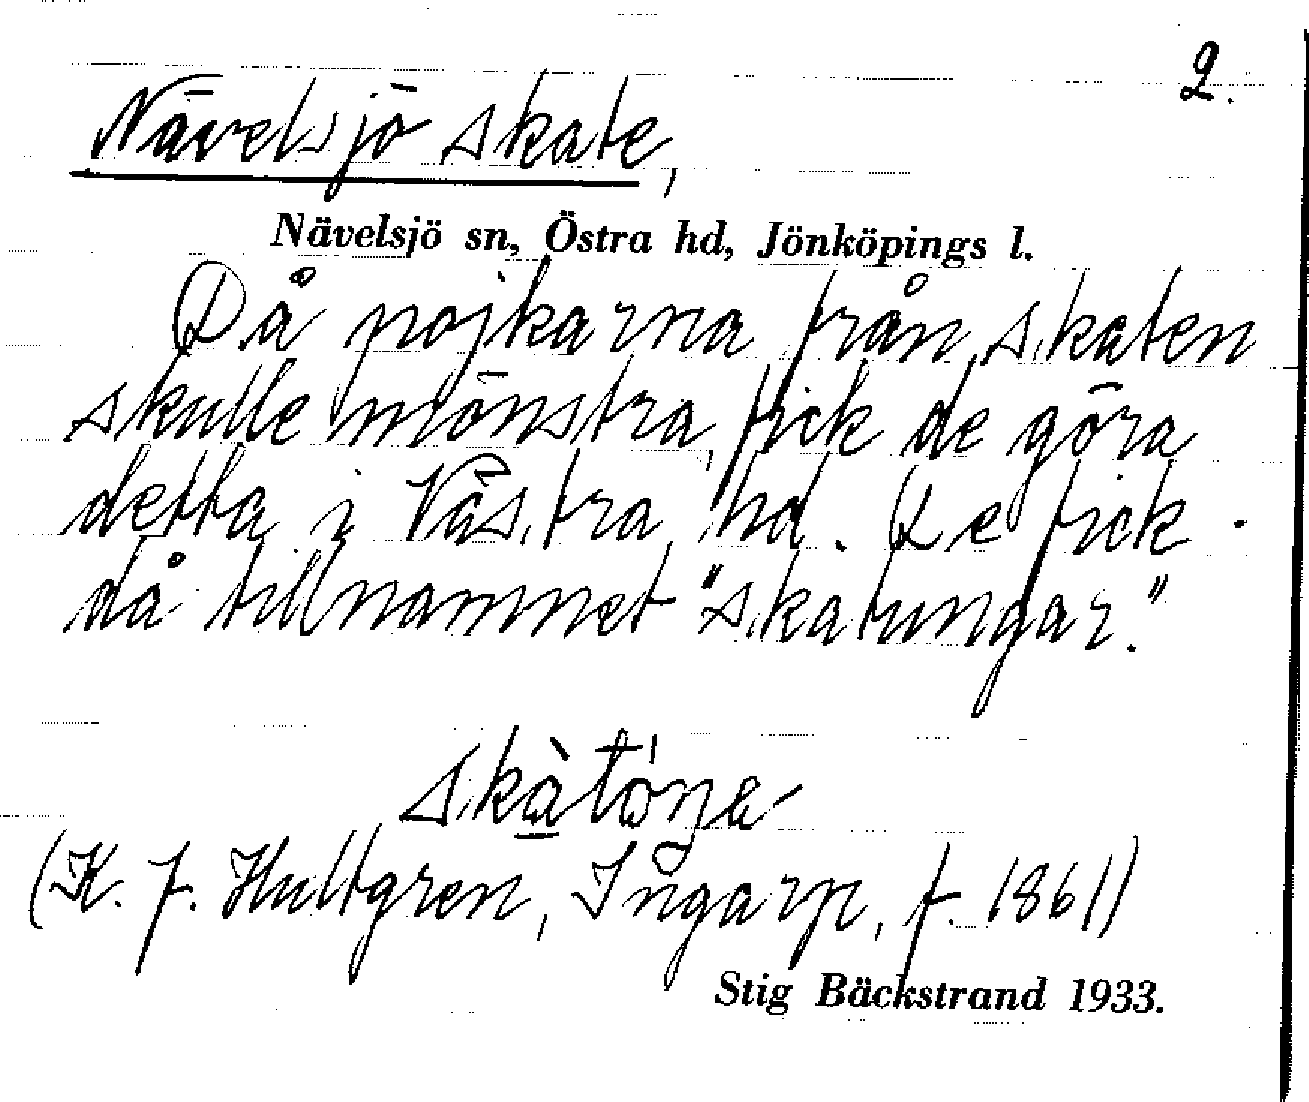 2.
Nävelsjö skate,
Nävelsjö sn, Östra hd, Jönköpings l.
Då pojkarna från skaten
skulle mönstra, fick de göra
detta i Västra hd. De fick
då tillnamnet "skatungar."
skàtóŋa
(K. J. Hultgren, Ingarp, f. 1861)
Stig Bäckstrand 1933.